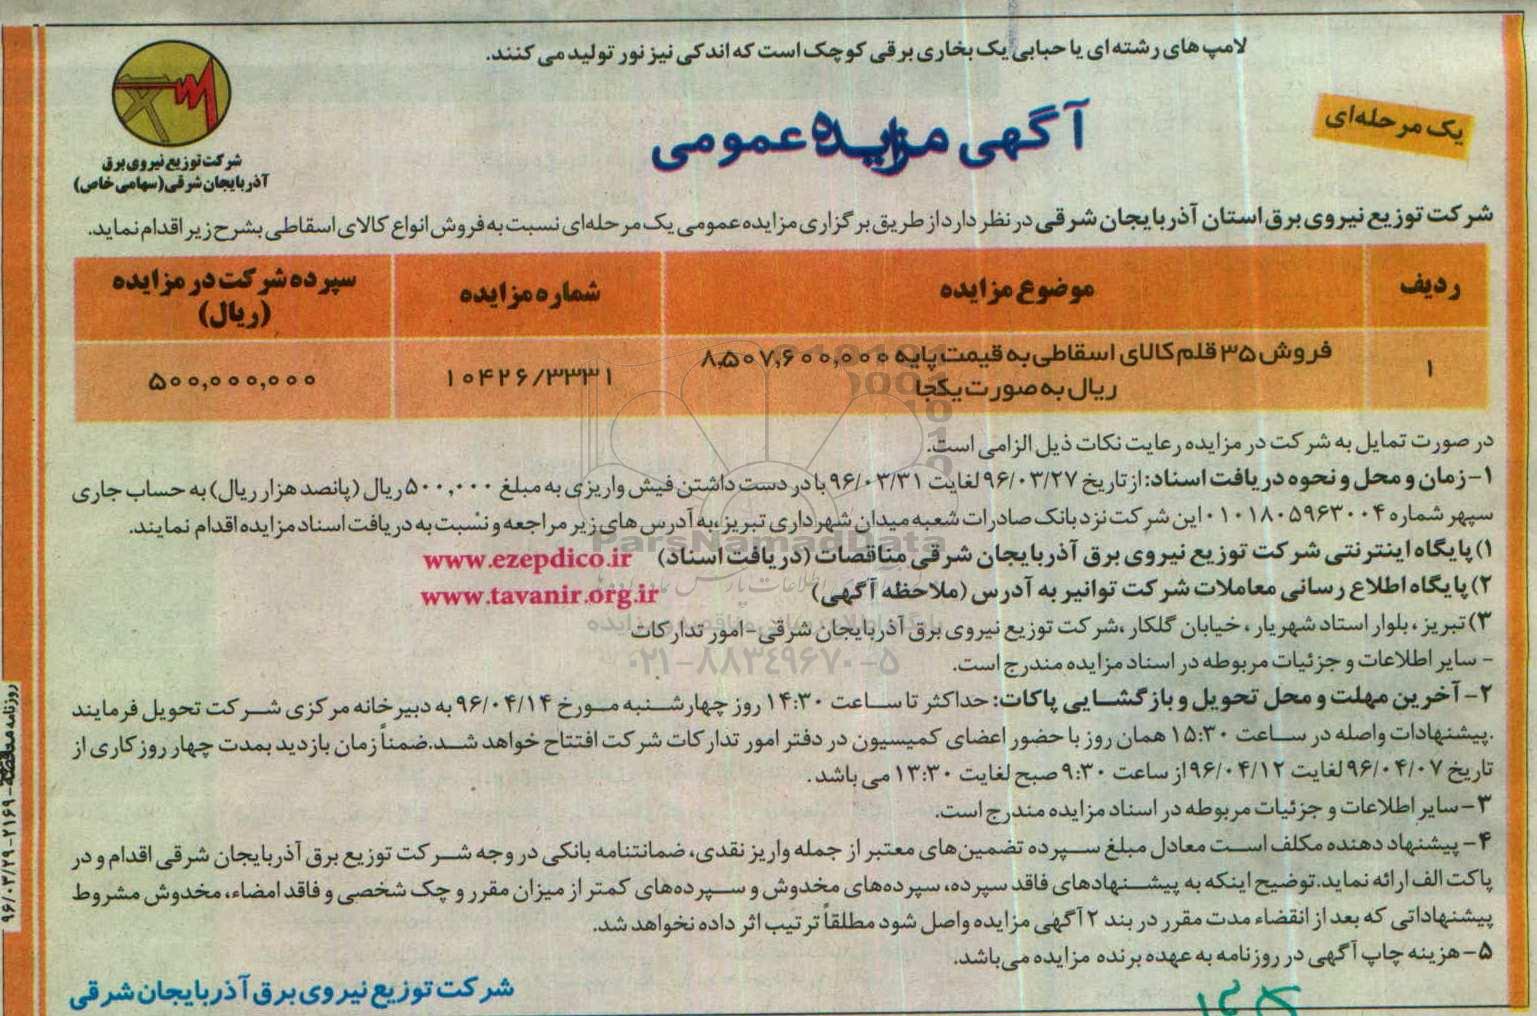 لامپ های رشته ای یا حبابی یک بخاری برقی کوچک است که اندکی نیز نور تولید می کنند.
یک مرحله‌ای
آگهی مزایده عمومی
شرکت توزیع نیروی برق
آذربایجان شرقی (سهامی خاص)
شرکت توزیع نیروی برق استان آذربایجان شرقی در نظر دارد از طریق برگزاری مزایده عمومی یک مرحله‌ای نسبت به فروش انواع کالای اسقاطی بشرح زیر اقدام نماید.
ردیف موضوع مزایده شماره مزایده سپرده شرکت در مزایده (ریال)
۱ فروش ۳۵ قلم کالای اسقاطی به قیمت پایه ۸,۵۰۷,۶۰۰,۰۰۰ ۱۰۴۲۶/۳۳۳۱ ۵۰۰,۰۰۰,۰۰۰
ریال به صورت یکجا
در صورت تمایل به شرکت در مزایده رعایت نکات ذیل الزامی است.
۱- زمان و محل و نحوه دریافت اسناد: از تاریخ ۹۶/۰۳/۲۷ لغایت ۹۶/۰۳/۳۱ با در دست داشتن فیش واریزی به مبلغ ۵۰۰,۰۰۰ ریال (پانصد هزار ریال) به حساب جاری
سپهر شماره ۰۱۰۱۸۰۵۹۶۳۰۰۴ این شرکت نزد بانک صادرات شعبه میدان شهرداری تبریز، به آدرس های زیر مراجعه و نسبت به دریافت اسناد مزایده اقدام نمایند.
۱) پایگاه اینترنتی شرکت توزیع نیروی برق آذربایجان شرقی مناقصات (دریافت اسناد) www.ezepdico.ir
۲) پایگاه اطلاع رسانی معاملات شرکت توانیر به آدرس (ملاحظه آگهی) www.tavanir.org.ir
۳) تبریز، بلوار استاد شهریار، خیابان گلکار، شرکت توزیع نیروی برق آذربایجان شرقی-امور تدارکات
- سایر اطلاعات و جزئیات مربوطه در اسناد مزایده مندرج است.
۲- آخرین مهلت و محل تحویل و بازگشایی پاکات: حداکثر تا ساعت ۱۴:۳۰ روز چهارشنبه مورخ ۹۶/۰۴/۱۴ به دبیرخانه مرکزی شرکت تحویل فرمایند
.پیشنهادات واصله در ساعت ۱۵:۳۰ همان روز با حضور اعضای کمیسیون در دفتر امور تدارکات شرکت افتتاح خواهد شد.ضمناً زمان بازدید بمدت چهار روز کاری از
تاریخ ۹۶/۰۴/۰۷ لغایت ۹۶/۰۴/۱۲ از ساعت ۹:۳۰ صبح لغایت ۱۳:۳۰ می باشد.
۳- سایر اطلاعات و جزئیات مربوطه در اسناد مزایده مندرج است.
۴- پیشنهاد دهنده مکلف است معادل مبلغ سپرده تضمین‌های معتبر از جمله واریز نقدی، ضمانتنامه بانکی در وجه شرکت توزیع برق آذربایجان شرقی اقدام و در
پاکت الف ارائه نماید.توضیح اینکه به پیشنهادهای فاقد سپرده، سپرده‌های مخدوش و سپرده‌های کمتر از میزان مقرر و چک شخصی و فاقد امضاء، مخدوش مشروط
پیشنهاداتی که بعد از انقضاء مدت مقرر در بند ۲ آگهی مزایده واصل شود مطلقاً ترتیب اثر داده نخواهد شد.
۵- هزینه چاپ آگهی در روزنامه به عهده برنده مزایده می‌باشد.
شرکت توزیع نیروی برق آذربایجان شرقی
ParsNamadData
۰۲۱-۸۸۳۴۹۶۷۰-۵